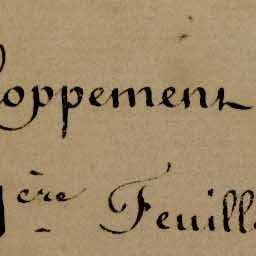 loppement
1ère Feuill